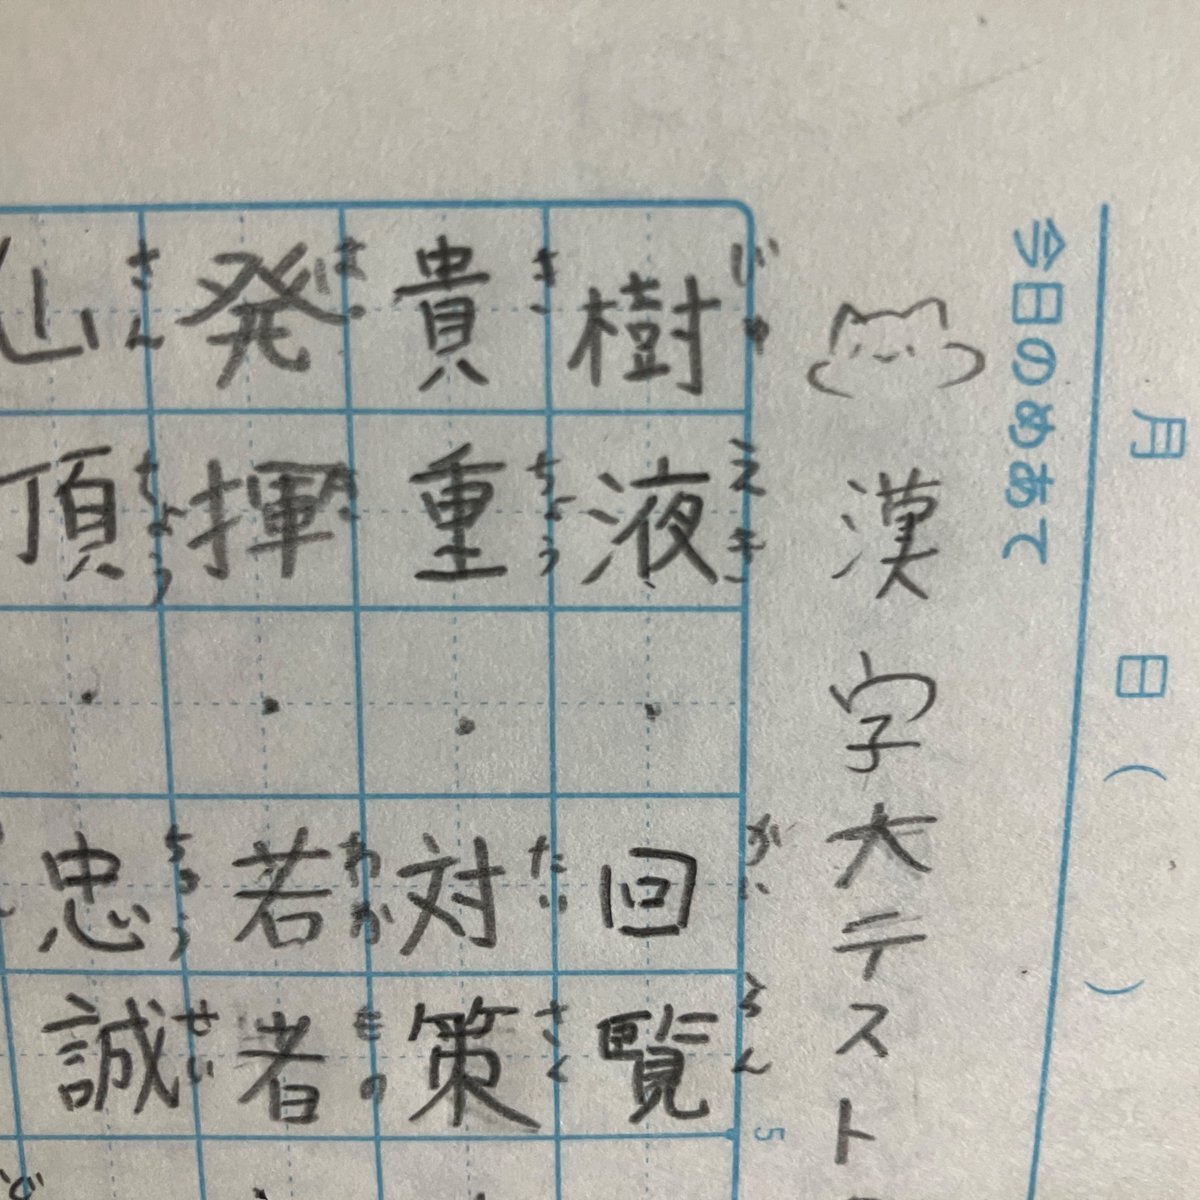 月 日( )
今日のめあて
漢字大テスト
樹液・回覧
じゅえき かいらん
5
貴重・対策
きちょう たいさく
発揮・若者
はっき わかもの
山頂・忠誠
さんちょう ちゅうせい